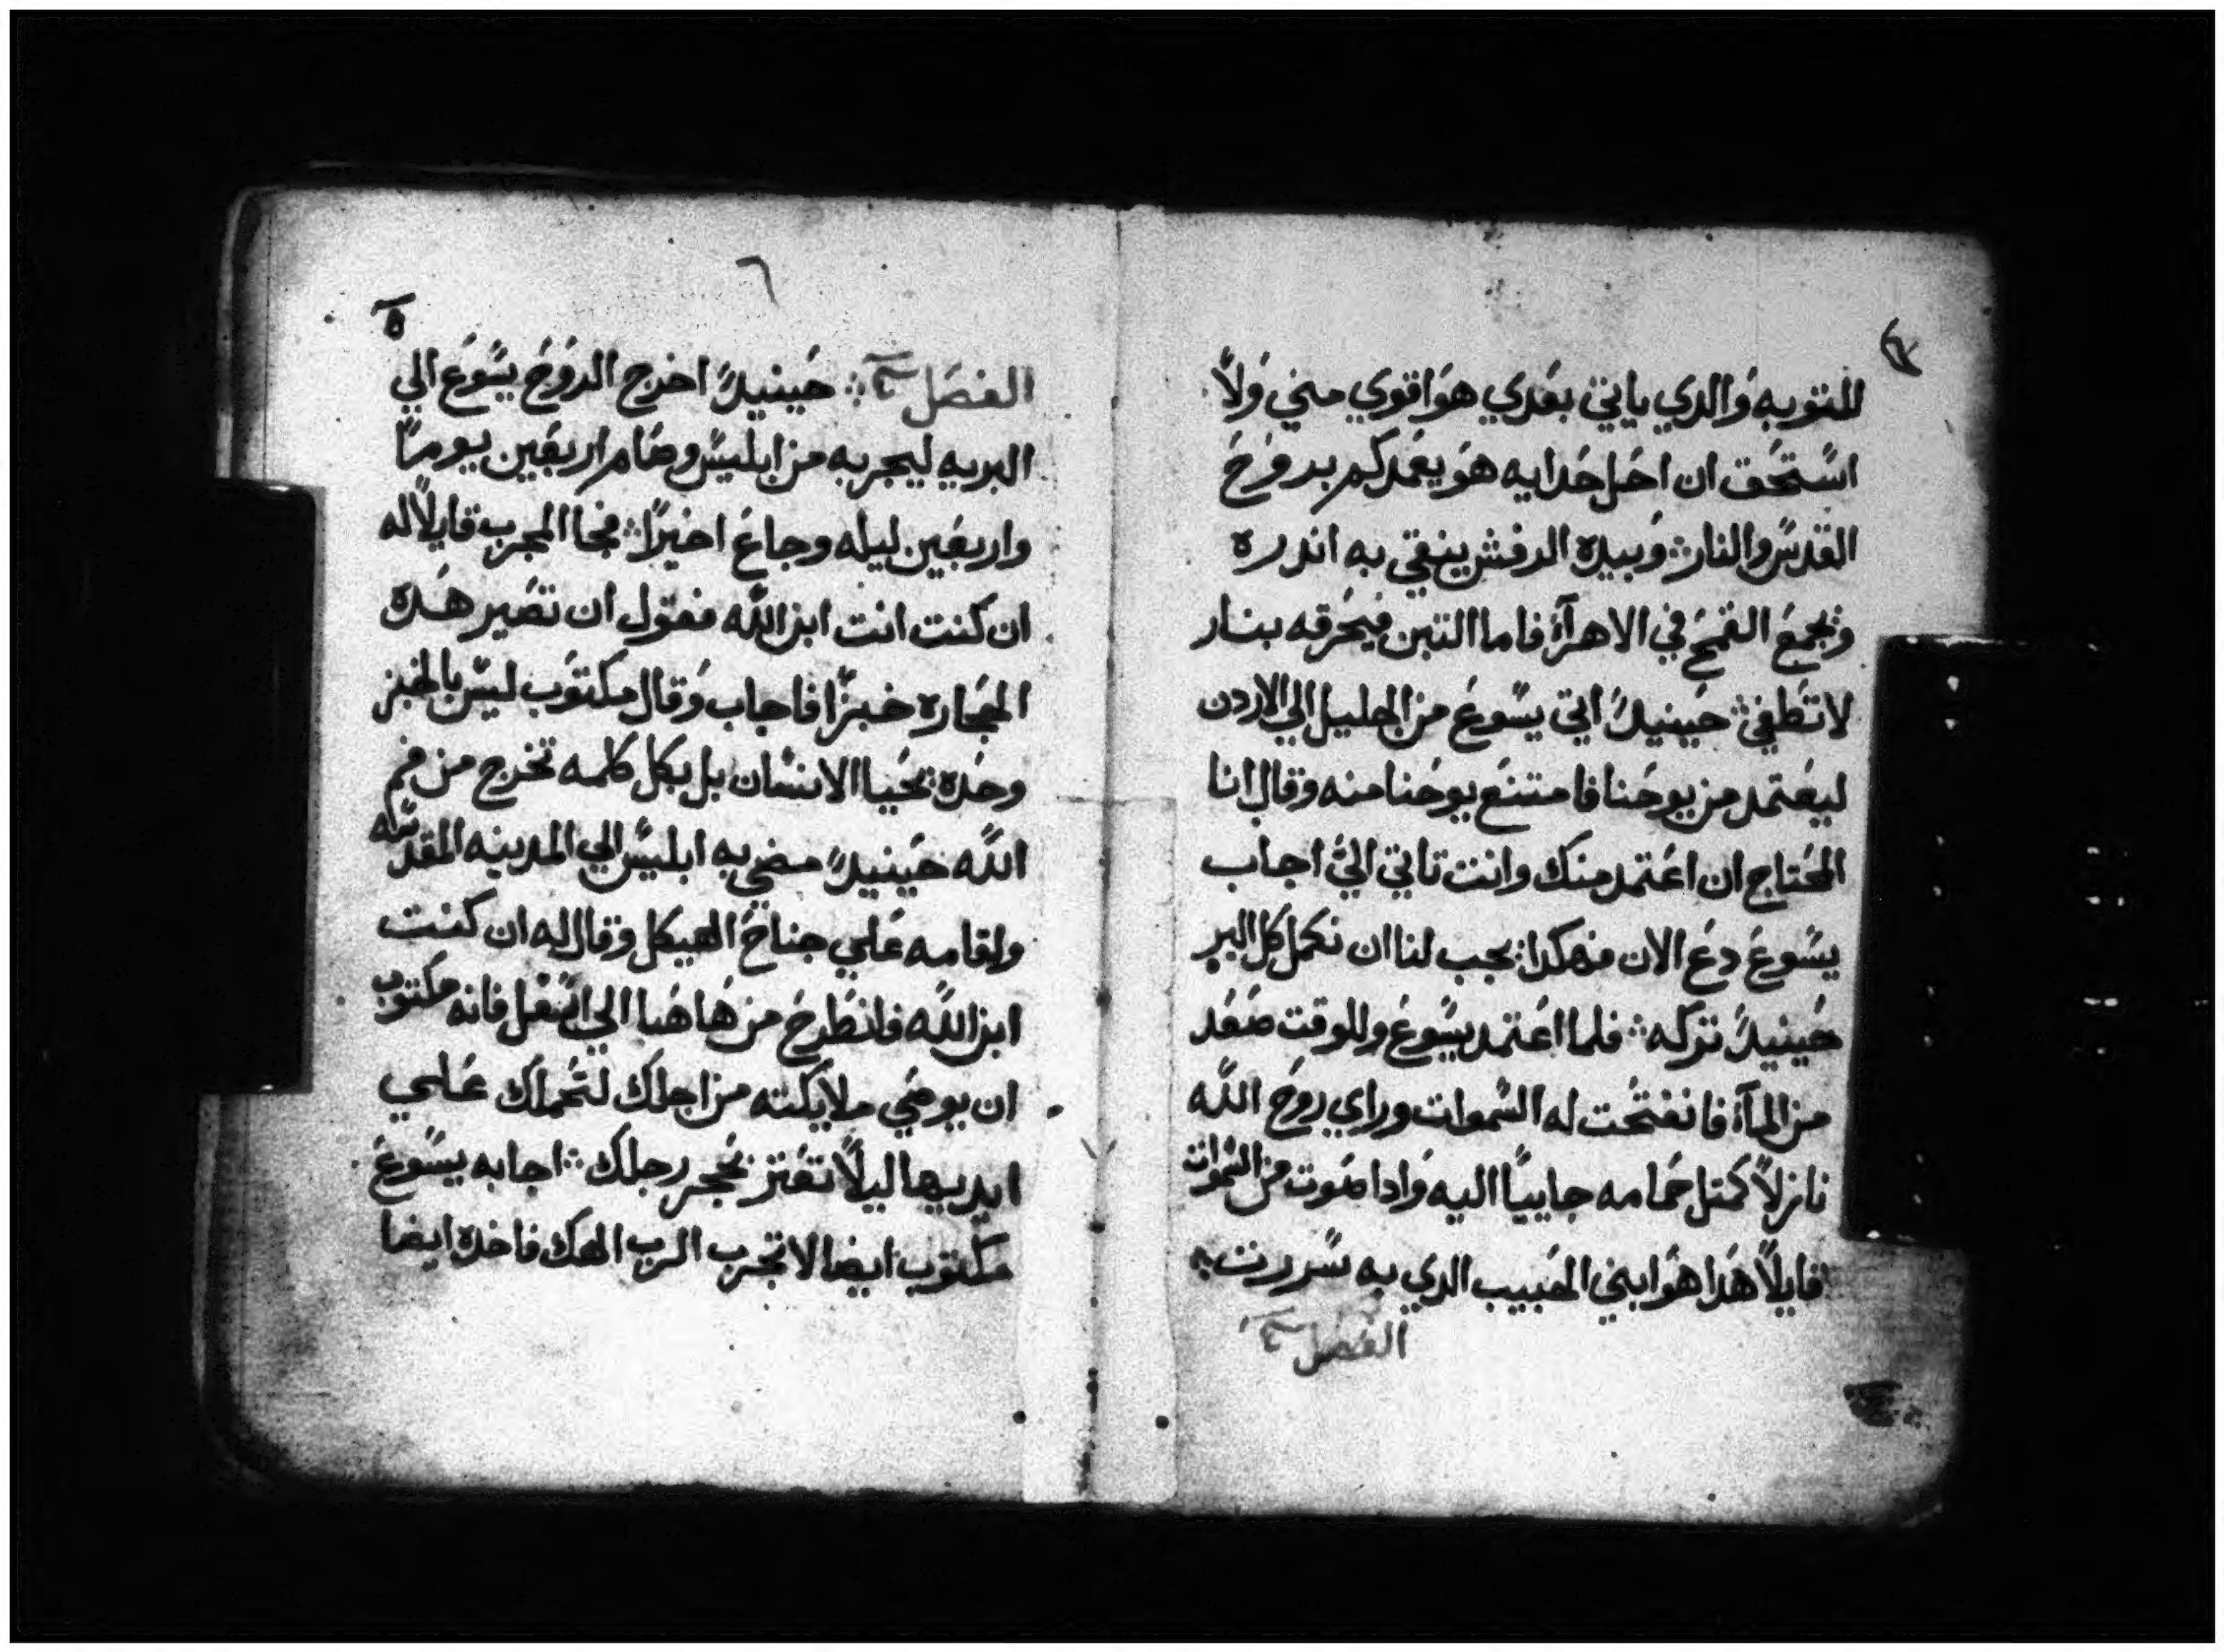 للتوبه والدي ياتي بعدي هو اقوي مني ولا
استحق ان احل حدايه هو يعمدكم بروح
القدس والنار ∴ وبيده الرفش ينقي به اندره
ويجمع القمح في الاهرآء فاما التبن فيحرقه بنار
لا تطفي ∴ حينيدً اتي يسوع من الجليل الي الاردن
ليعتمد من يوحنا فامتنع يوحنا منه وقال انا
المحتاج ان اعتمد منك وانت تاتي اليَّ اجاب
يسوع دع الان فهكدا يجب لنا ان نكمل كل البر
حينيدً تركه ∴ فلما اعتمد يسوع وللوقت صعد
من المآء فانفتحت له السموات وراي روح الله
نازلاً كمتل حمامه جاييًا اليه وادا صوت من السموات
قايلاً هدا هو ابني الحبيب الدي به سررت ∴
الفصل
٦
الفصل ∴ حينيدً اخرج الروح يسوع الي
البريه ليجربه من ابليس وصام اربعين يومًا
واربعين ليله وجاع اخيرًا ∴ فجا المجرب قايلاً له
ان كنت انت ابن الله فقول ان تصير هده
الحجاره خبزًا فاجاب وقال مكتوب ليس بالخبز
وحده يحيا الانسان بل بكل كلمه تخرج من فم
الله حينيدً مضي به ابليس الي المدينه المقدسه
واقامه علي جناح الهيكل وقال له ان كنت
ابن الله فانطرح من هاهنا الي اسفل فانه مكتوب
ان يوصي ملايكته من اجلك لتحملك علي
ايديها ليلاً تعتر بحجر رجلك ∴ اجابه يسوع
مكتوب ايضا لا تجرب الرب الهك فاخده ايضا